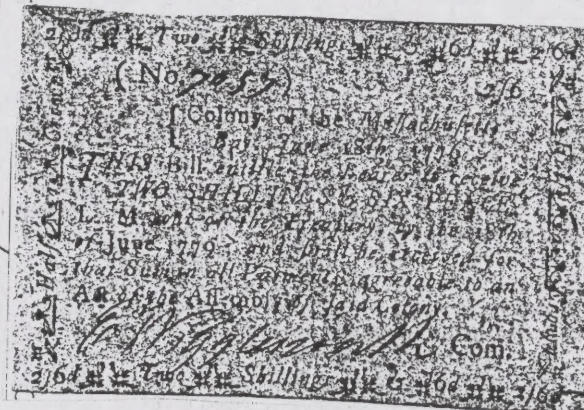 2/6d Two Shillings & 6d 2/6d
(No 7057) 2/6
Colony of the Massachusetts
Bay, June 18th, 1776
THIS Bill entitles the Bearer to receive
TWO SHILLINGS & SIX PENCE
L. M. out of the Treasury by the 18th
of June 1779 and shall be received for
that Sum in all Payments, agreeable to an
Act of the Assembly of said Colony.
Com.
2/6d Two Shillings & 6d 2/6d
Half a Crown